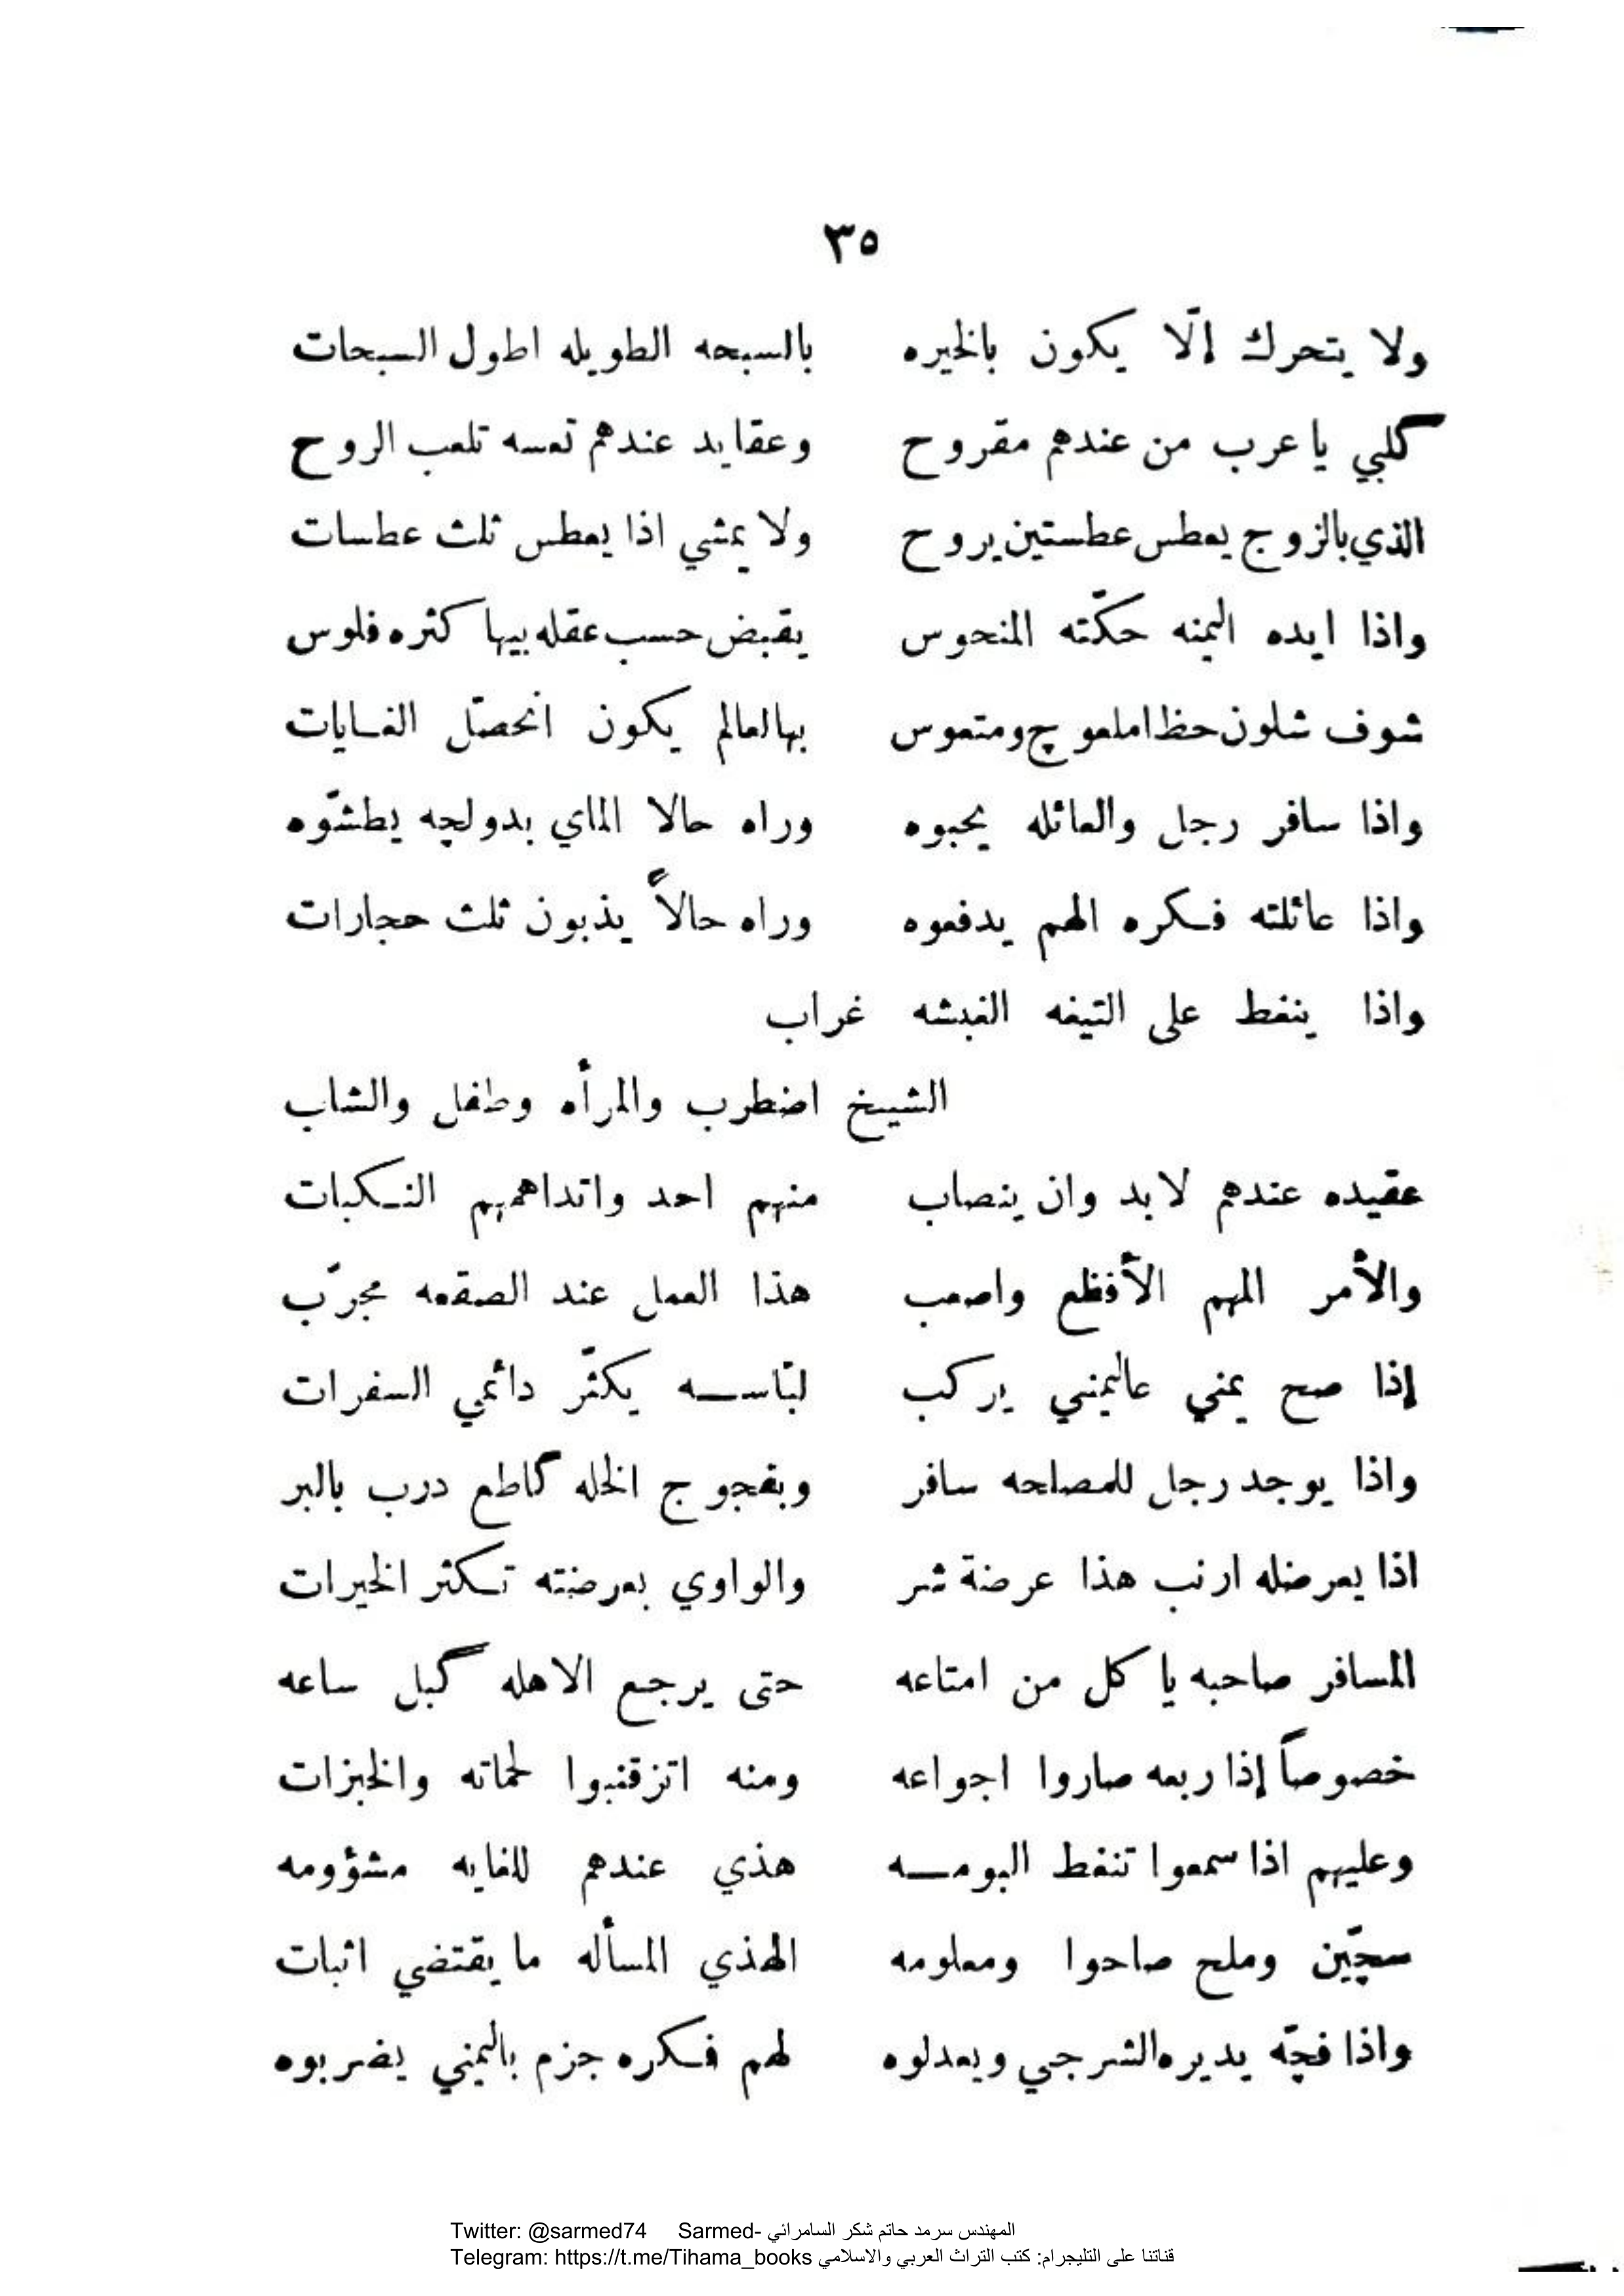 ٣٥
ولا يتحرك إلّا يكون بالخيره بالسبحه الطويله اطول السبحات
گلبي يا عرب من عندهم مقروح وعقايد عندهم تعسه تلعب الروح
الذي بالزوج يعطس عطستين يروح ولا يمشي اذا يعطس ثلث عطسات
واذا ايده اليمنه حكّته المنحوس يقبض حسب عقله بيها كثره فلوس
شوف شلون حظ املعوج ومتعوس بهالعالم يكون انحصّل الغايات
واذا سافر رجل والعائله يحبوه وراه حالا الماي بدولچه يطشّوه
واذا عائلته فكره الهم يدفعوه وراه حالاً يذبون ثلث حجارات
واذا ينغط على التيغه الغبشه غراب
الشيخ اضطرب والمرأه وطفل والشاب
عقيده عندهم لابد وان ينصاب منهم احد واتداهمهم النكبات
والأمر المهم الأفظع واصعب هذا العمل عند الصقعه مجرّب
إذا صح يمني عاليمني يركب لبّاسه يكثّر دائمي السفرات
واذا يوجد رجل للمصلحه سافر وبفجوج الخله گاطع درب بالبر
اذا يعرضله ارنب هذا عرضة شر والواوي بعرضته تكثر الخيرات
المسافر صاحبه ياكل من امتاعه حتى يرجع الاهله گبل ساعه
خصوصاً إذا ربعه صاروا اجواعه ومنه اتزقنبوا لحماته والخبزات
وعليهم اذا سمعوا تنغط البومه هذي عندهم للغايه مشؤومه
سچّين وملح صاحوا ومعلومه الهذي المسأله ما يقتضي اثبات
واذا فچّه يديره الشرجي ويعدلوه لهم فكره جزم باليمني يضربوه
Twitter: @sarmed74 Sarmed- المهندس سرمد حاتم شكر السامرائي
Telegram: https://t.me/Tihama_books قناتنا على التليجرام: كتب التراث العربي والاسلامي